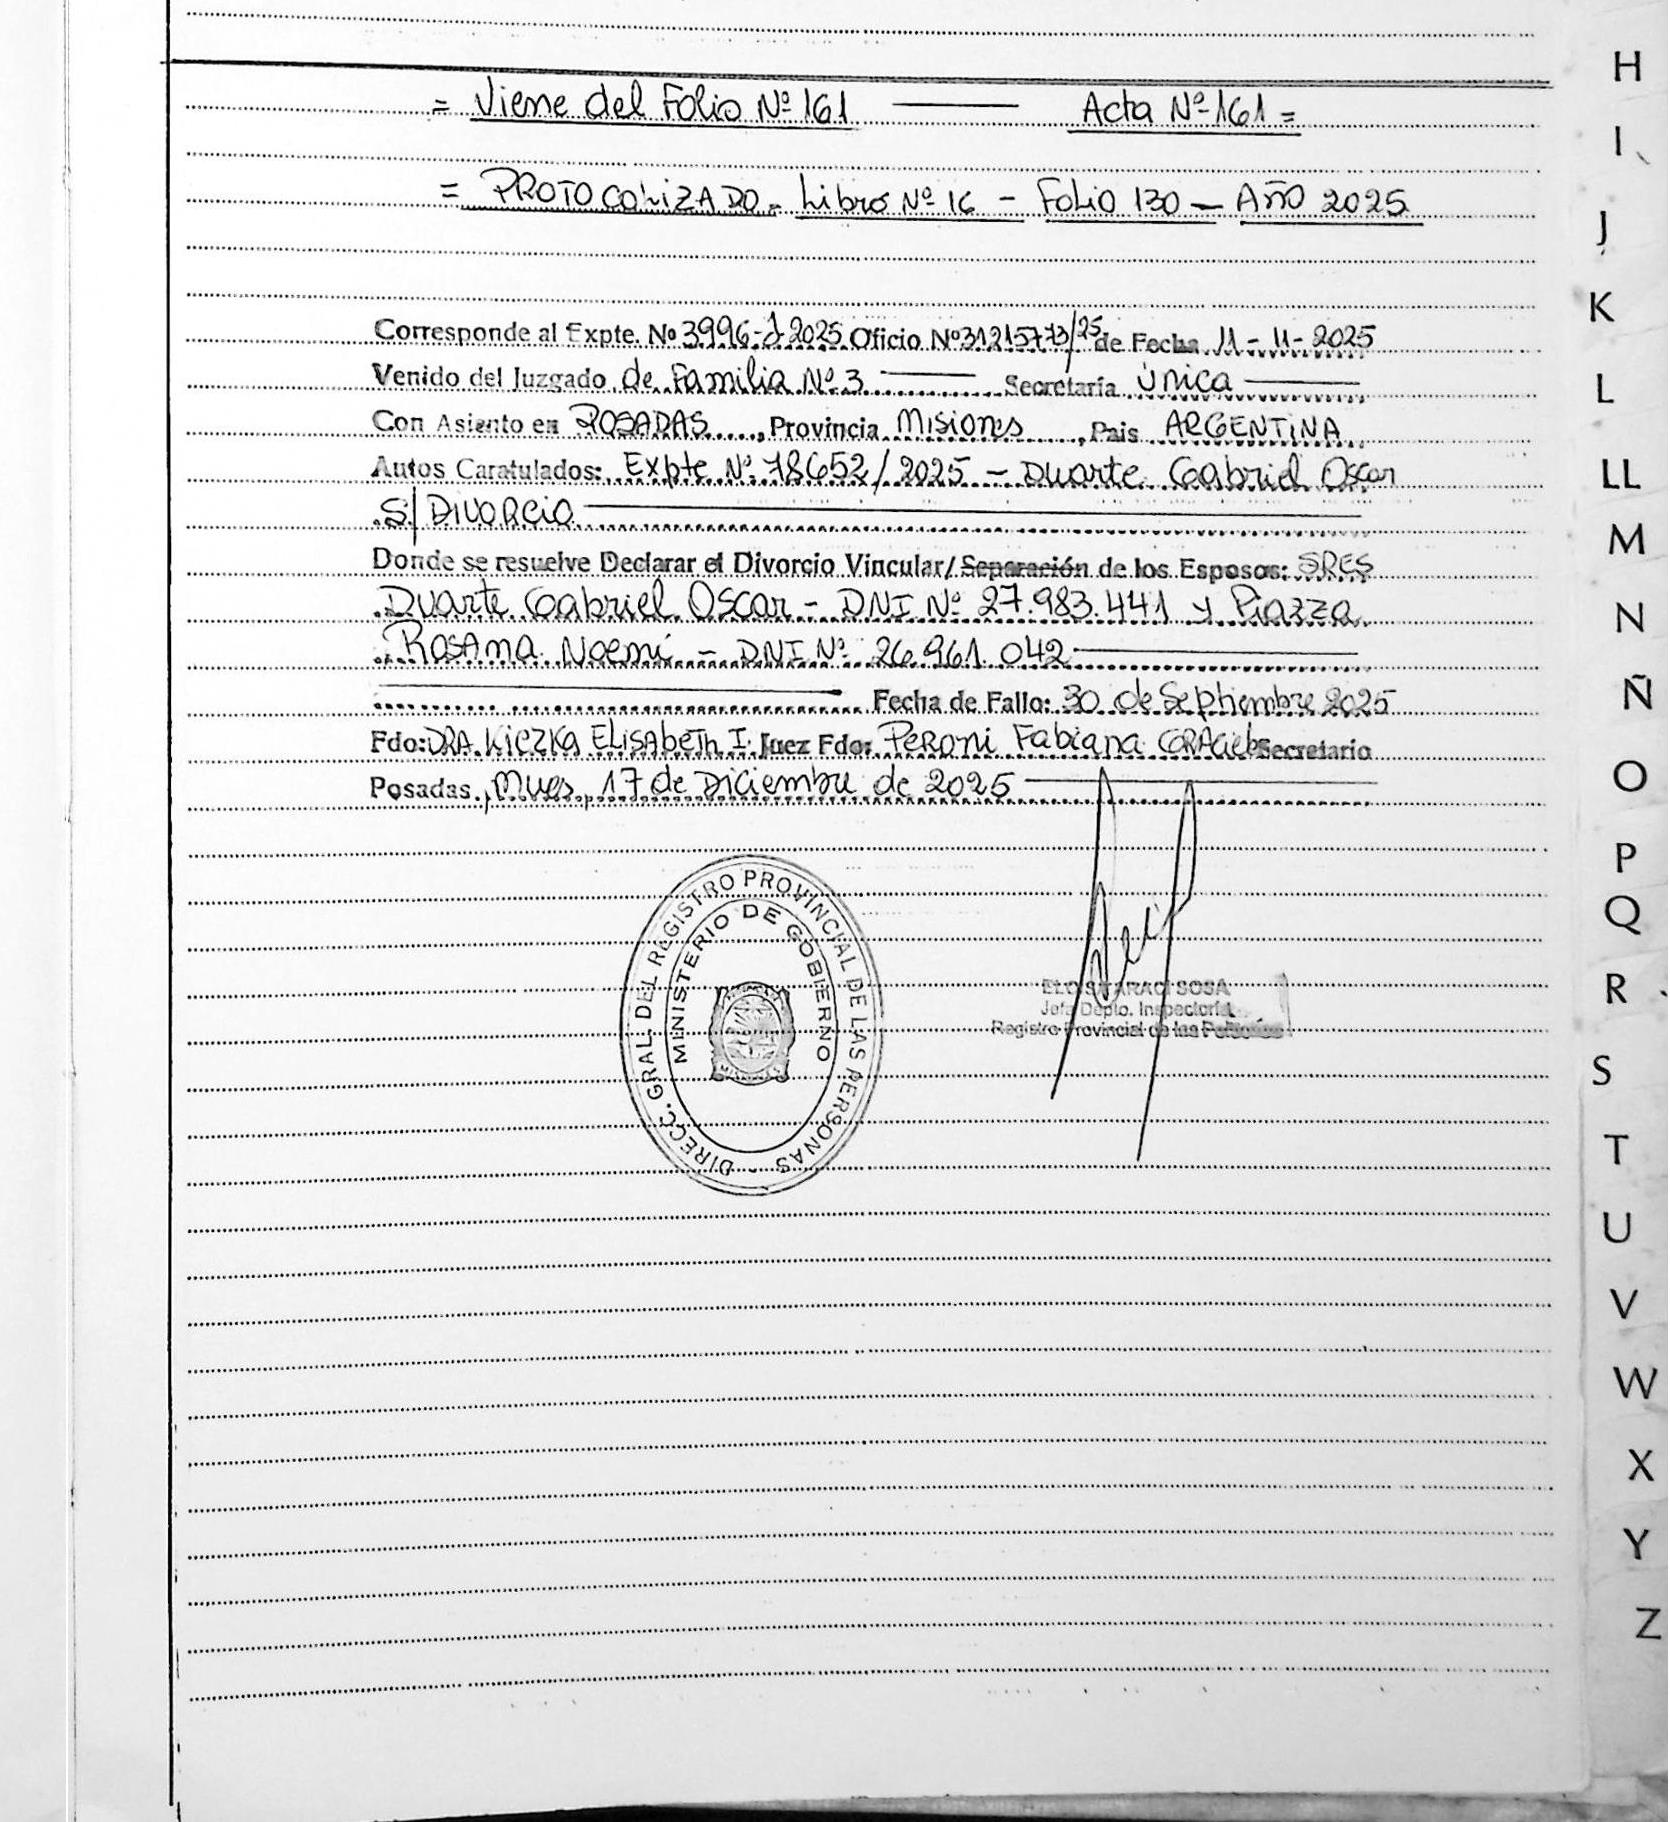 = Viene del Folio Nº 161 ——— Acta Nº 161 =
= PROTOCOLIZADO = Libro Nº 16 - Folio 130 - Año 2025
Corresponde al Expte. Nº 3996-J-2025 Oficio Nº 31215773/25 de Fecha 11-11-2025
Venido del Juzgado de Familia Nº 3 ——— Secretaría Única ———
Con Asiento en POSADAS, Provincia Misiones, Pais ARGENTINA
Autos Caratulados: Expte Nº 78652/2025 - Duarte Gabriel Oscar
S/ DIVORCIO ———
Donde se resuelve Declarar el Divorcio Vincular/Separación de los Esposos: SRES
Duarte Gabriel Oscar - DNI Nº 27.983.441 y Piazza
Rosana Noemí - DNI Nº 26.961.042 ———
——— Fecha de Fallo: 30 de Septiembre 2025
Fdo: DRA. Kiczka Elisabeth I. Juez Fdo: Peroni Fabiana Graciela Secretario
Posadas, Mnes, 17 de Diciembre de 2025 ———
DIRECC. GRAL. DEL REGISTRO PROVINCIAL DE LAS PERSONAS -
MINISTERIO DE GOBIERNO
SOSA
Jefa Depto. Inspectoría
Registro Provincial de las Personas
H
I
J
K
L
LL
M
N
Ñ
O
P
Q
R
S
T
U
V
W
X
Y
Z